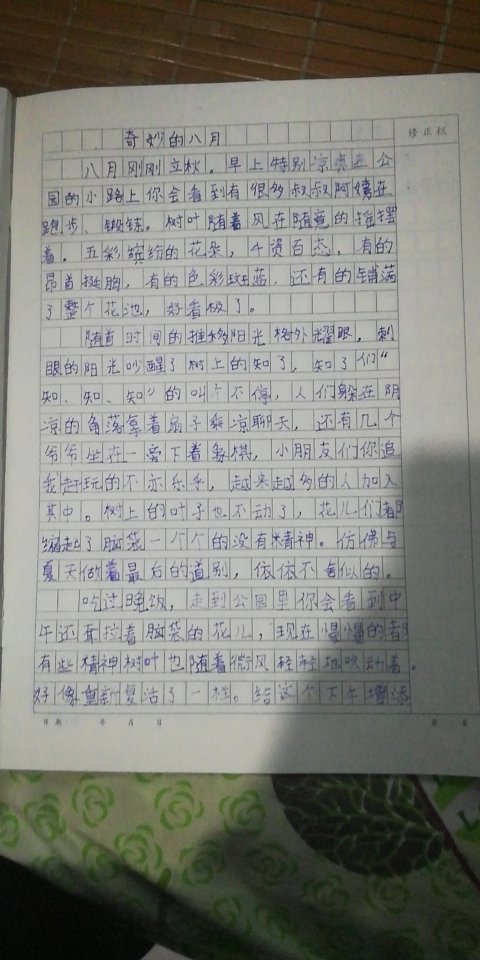 奇妙的八月
修正栏
八月刚刚立秋。早上特别凉爽在公
园的小路上你会看到有很多叔叔阿姨在
跑步、锻练。树叶随着风在随意的摇摆
着。五彩缤纷的花朵,千资百态,有的
昂首挺胸,有的色彩斑蓝,还有的铺满
了整个花池,好看极了。
随着时间的推移阳光格外耀眼,刺
眼的阳光吵醒了树上的知了,知了们“
知、知、知”的叫个不停,人们躲在阴
凉的角落拿着扇子乘凉聊天,还有几个
爷爷坐在一旁下着象棋,小朋友们你追
我赶玩的不亦乐乎,越来越多的人加入
其中。树上的叶子也不动了,花儿们都
缩起了脑袋一个个的没有精神。仿佛与
夏天做着最后的道别,依依不舍似的。
吃过晚饭,走到公园里你会看到中
午还耷拉着脑袋的花儿,现在慢慢的都
有些精神树叶也随着微风轻轻地吹动着。
好像重新复活了一样。给这个下午增添
日期: 年 月 日 第 页